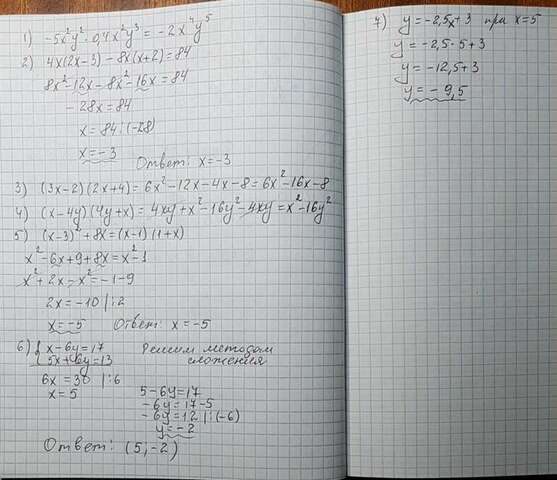 1) -5x²y² · 0,4x²y³ = -2x⁴y⁵
2) 4x(2x-3) - 8x(x+2) = 84
8x² - 12x - 8x² - 16x = 84
- 28x = 84
x = 84 : (-28)
x = -3
Ответ: x = -3
3) (3x-2)(2x+4) = 6x² - 12x - 4x - 8 = 6x² - 16x - 8
4) (x-4y)(4y+x) = 4xy + x² - 16y² - 4xy = x² - 16y²
5) (x-3)² + 8x = (x-1)(1+x)
x² - 6x + 9 + 8x = x² - 1
x² + 2x - x² = -1 - 9
2x = -10 | : 2
x = -5 Ответ: x = -5
6) { x - 6y = 17 Решим методом
5x + 6y = 13 сложения
6x = 30 | : 6
x = 5
5 - 6y = 17
- 6y = 17 - 5
- 6y = 12 | : (-6)
y = -2
Ответ: (5; -2)
7) y = -2,5x + 3 при x = 5
y = -2,5 · 5 + 3
y = -12,5 + 3
y = -9,5